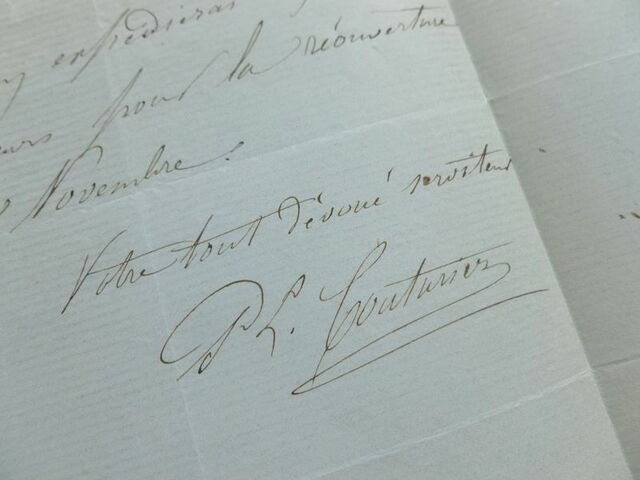 y expédierai
pour la réouverture
Novembre.
Votre tout dévoué serviteur
Ph. L. Couturier